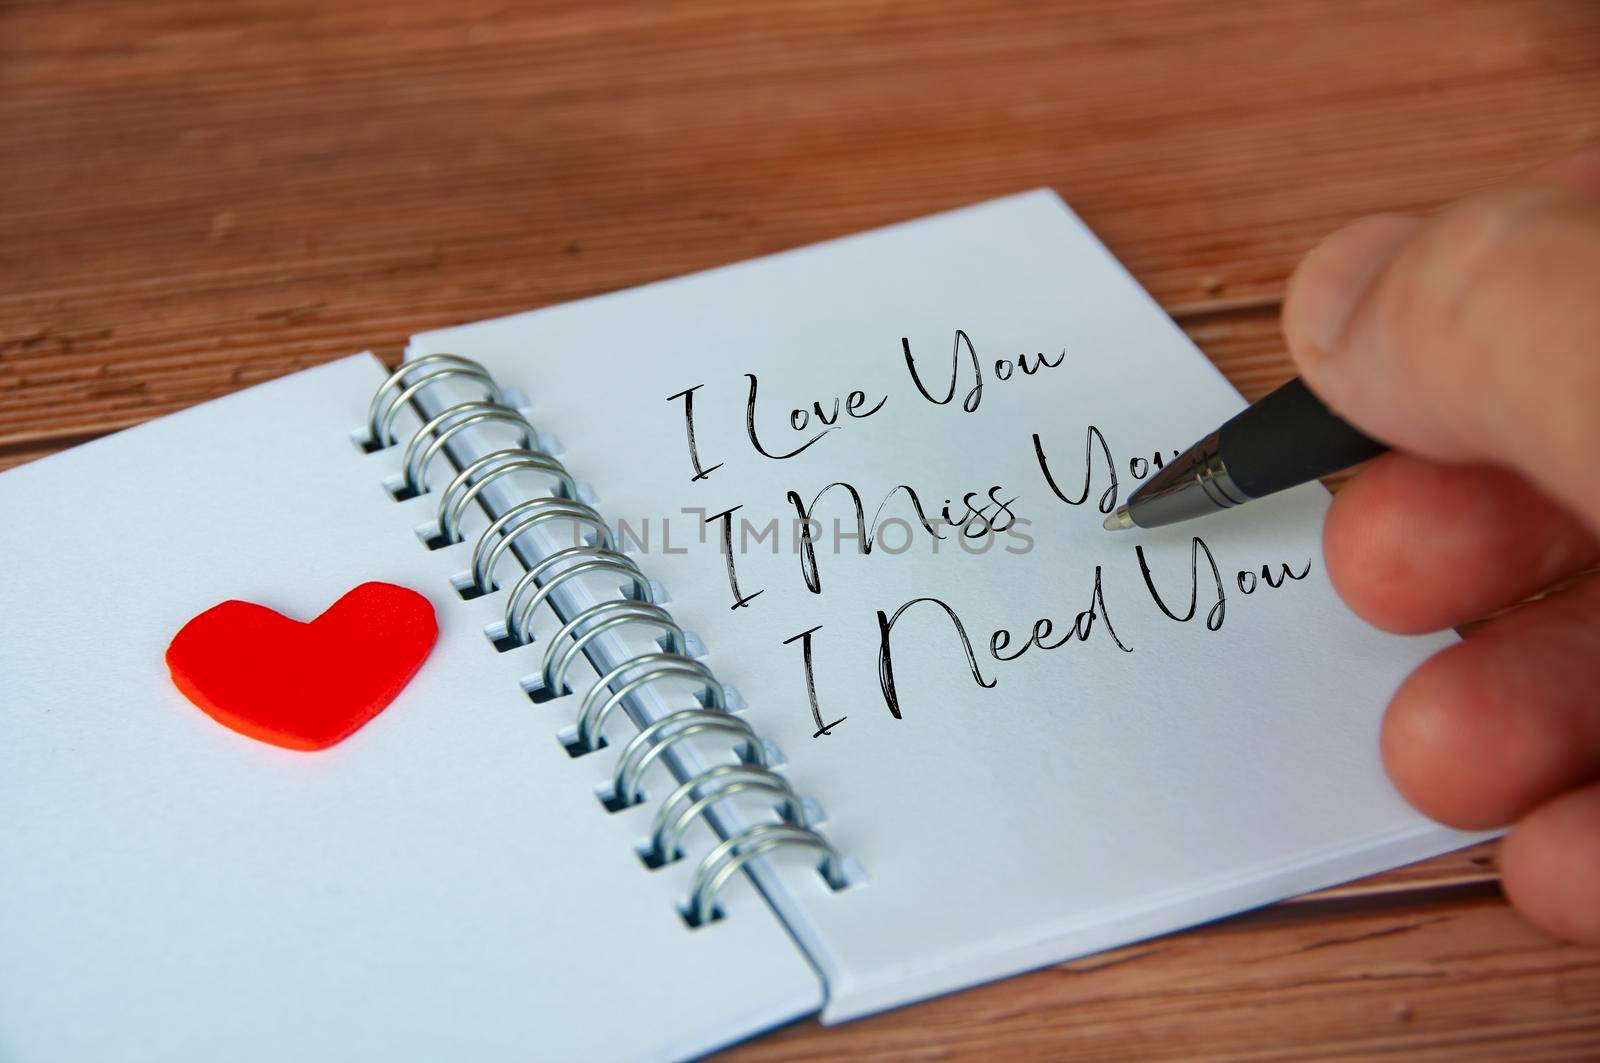 I Love You
I Miss You
UNLIMPHOTOS
I Need You